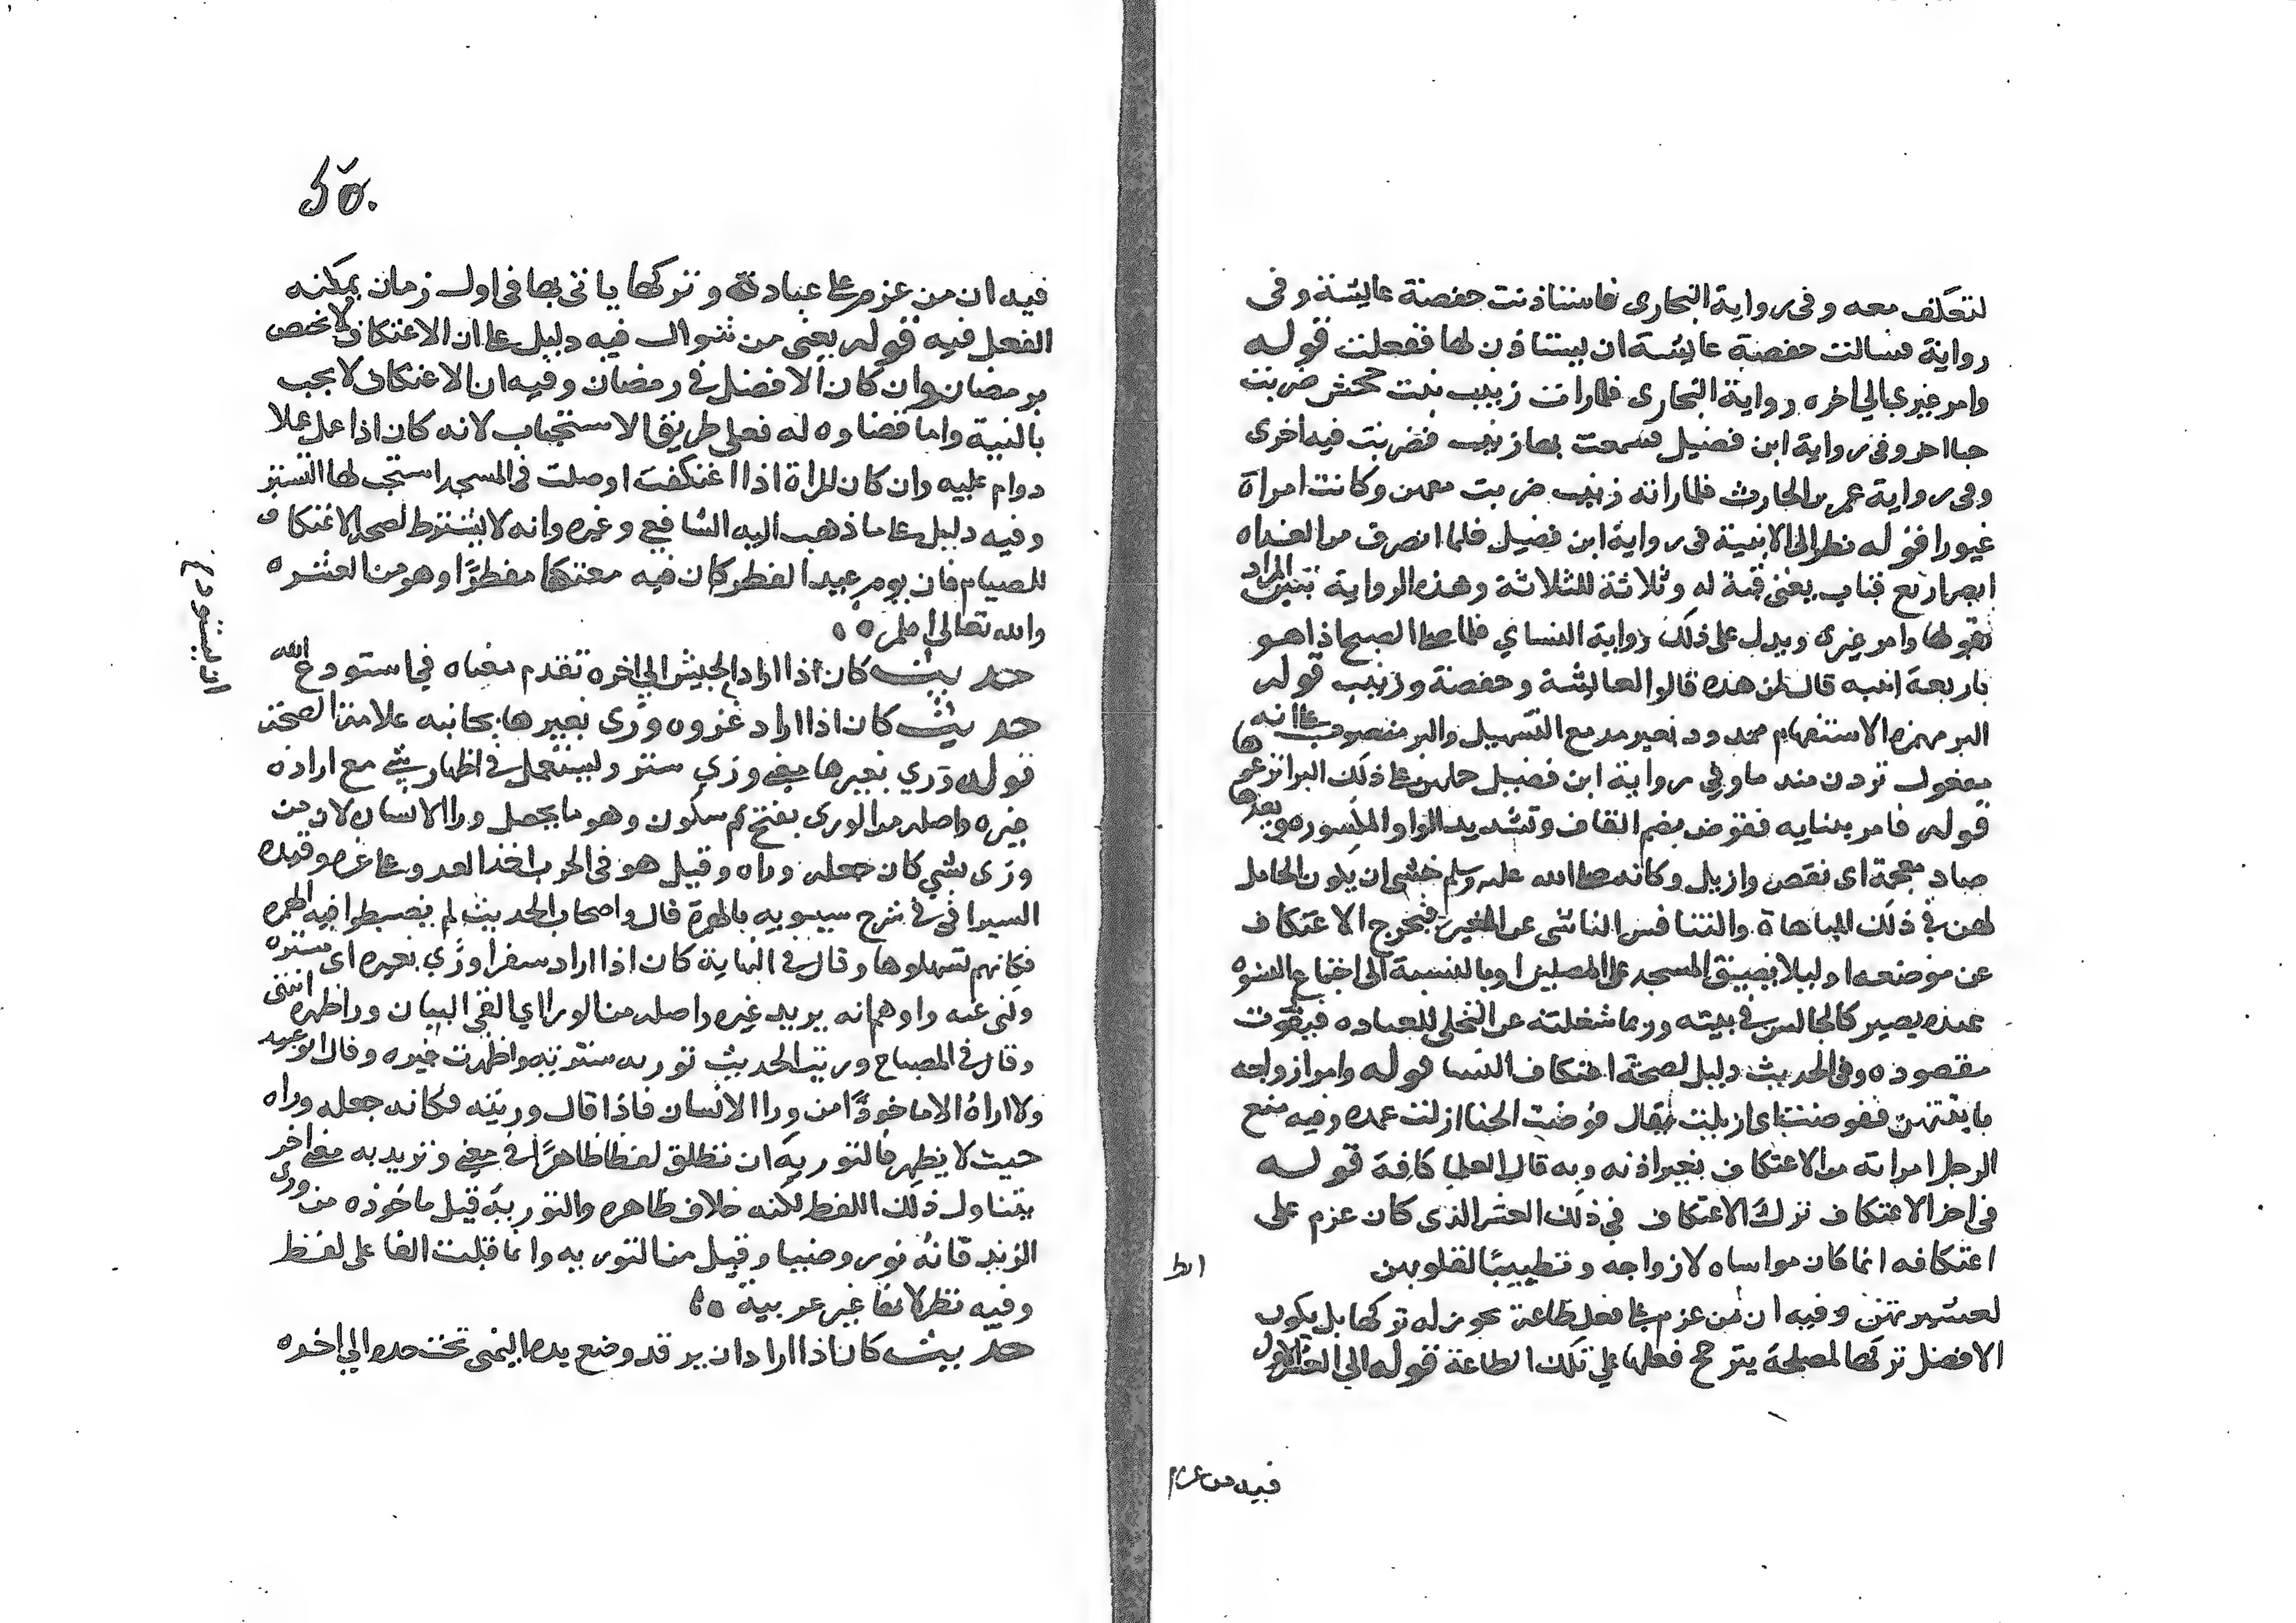 لتعتكف معه وفي رواية البخاري فاستاذنت حفصة عايشة وفي
رواية فسالت حفصة عايشة ان يستاذن لها ففعلت قوله
وامر غيري الى اخره رواية البخاري فلما رات زينب بنت جحش ضربت
خبا اخر وفي رواية ابن فضيل فسمعت بها زينب فضربت فيه اخرى
وفي رواية عمر بن الحارث فلما راته زينب ضربت معهن وكانت امراة
غيورا قوله نظر الى الابنية في رواية ابن فضيل فلما انصرف من الغداه
ابصر اربع قباب يعني قبة له وثلاثة للثلاثة وهذه الرواية تبين المراد
بقولها وامر غيري ويدل على ذلك رواية النساي فلما صلى الصبح اذا هو
باربعة ابنيه قال لمن هذه قالوا لعايشة وحفصة وزينب قوله
البر بهمزه الاستفهام ممدود بغير مد مع التسهيل والبر منصوب على انه
مفعول تردن منه ما وفي رواية ابن فضيل حملهن على ذلك البر انزعوها
قوله فامر ببنايه فقوض بضم القاف وتشديد الواو المكسوره وبعدها
ضاد معجمة اي نقض وازيل وكانه صلى الله عليه وسلم خشي ان يكون الحامل
لهن في ذلك المباهاة والتنافس الناشى عن الغيرة فيخرج الاعتكاف
عن موضعه او ليلا يضيق المسجد على المصلين او بالنسبة الى اجتماع النسوه
عنده يصير كالجالس في بيته وربما شغلنه عن التخلي للعباده فيفوت
مقصوده وفي الحديث دليل لصحة اعتكاف النسا قوله وامر ازواجه
بابنيتهن فقوضت اي ازيلت يقال قوضت الخبا ازلت عمده وفيه منع
الرجل امراته من الاعتكاف بغير اذنه وبه قال العلما كافة قوله
في اخر الاعتكاف ترك الاعتكاف في ذلك العشر الذي كان عزم على
اعتكافه انما كان مواساه لازواجه وتطييبا لقلوبهن
لعشيرتهن وفيه ان من عزم على فعل طاعة يجوز له تركها بل يكون
الافضل تركها لمصلحة يترجح فعلها على تلك الطاعة قوله الى العشر الاول
فيه من عزم
٢٥٠
فيه ان من عزم على عبادة وتركها ياتي بها في اول زمان يمكنه
الفعل فيه قوله يعني من شوال فيه دليل على ان الاعتكاف لا يخص
برمضان وان كان الافضل في رمضان وفيه ان الاعتكاف لا يجب
بالنية واما قضاوه له فعلى طريق الاستحباب لانه كان اذا عمل عملا
دوام عليه وان كان للمراة اذا اعتكفت او صلت في المسجد استحب لها التستر
وفيه دليل على ما ذهب اليه الشافعي وغيره وانه لا يشترط لصحة الاعتكاف
للصيام فان يوم عيد الفطر كان فيه معتكفا مفطرا وهو من العشره
والله تعالى اعلم
حديث كان اذا اراد الجيش الى اخره تقدم معناه في استودع الله
حديث كان اذا اراد غزوه ورى بغيرها بجانبه علامة الصحة
قوله وري بغيرها معنى وري ستر وليستعمل في اظهار شي مع اراده
غيره واصله من الورى بفتح ثم سكون وهو ما يجعل ورا الانسان لان من
ورى بشي كان جعله وراه وقيل هو في الحرب اخذ العدو على غره وقيده
السيرافي في شرح سيبويه بالهمزة قال واصحاب الحديث لم يضبطوا فيه الهمزه
فكانهم سهلوها وقال في النهاية كان اذا اراد سفرا وري بغيره اي ستره
وكنى عنه واوهم انه يريد غيره واصله من الورا اي القى البيان ورا ظهره انتهى
وقال في المصباح وريت الحديث توريه سترته واظهرت غيره وقال ابو عبيد
ولا اراه الا ماخوذا من ورا الانسان فاذا قال وريته فكانه جعله وراه
حيث لا يظهر فالتوريه ان تطلق لفظا ظاهرا في معنى وتريد به معنى اخر
يتناول ذلك اللفظ لكنه خلاف ظاهره والتورية قيل ماخوذه من ورى
الزند فانه نور وضيا وقيل من التوريه وانما قلبت الفا على لغة طي
وفيه نظر لانها غير عربية
حديث كان اذا اراد ان يرقد وضع يده اليمنى تحت خده الى اخره